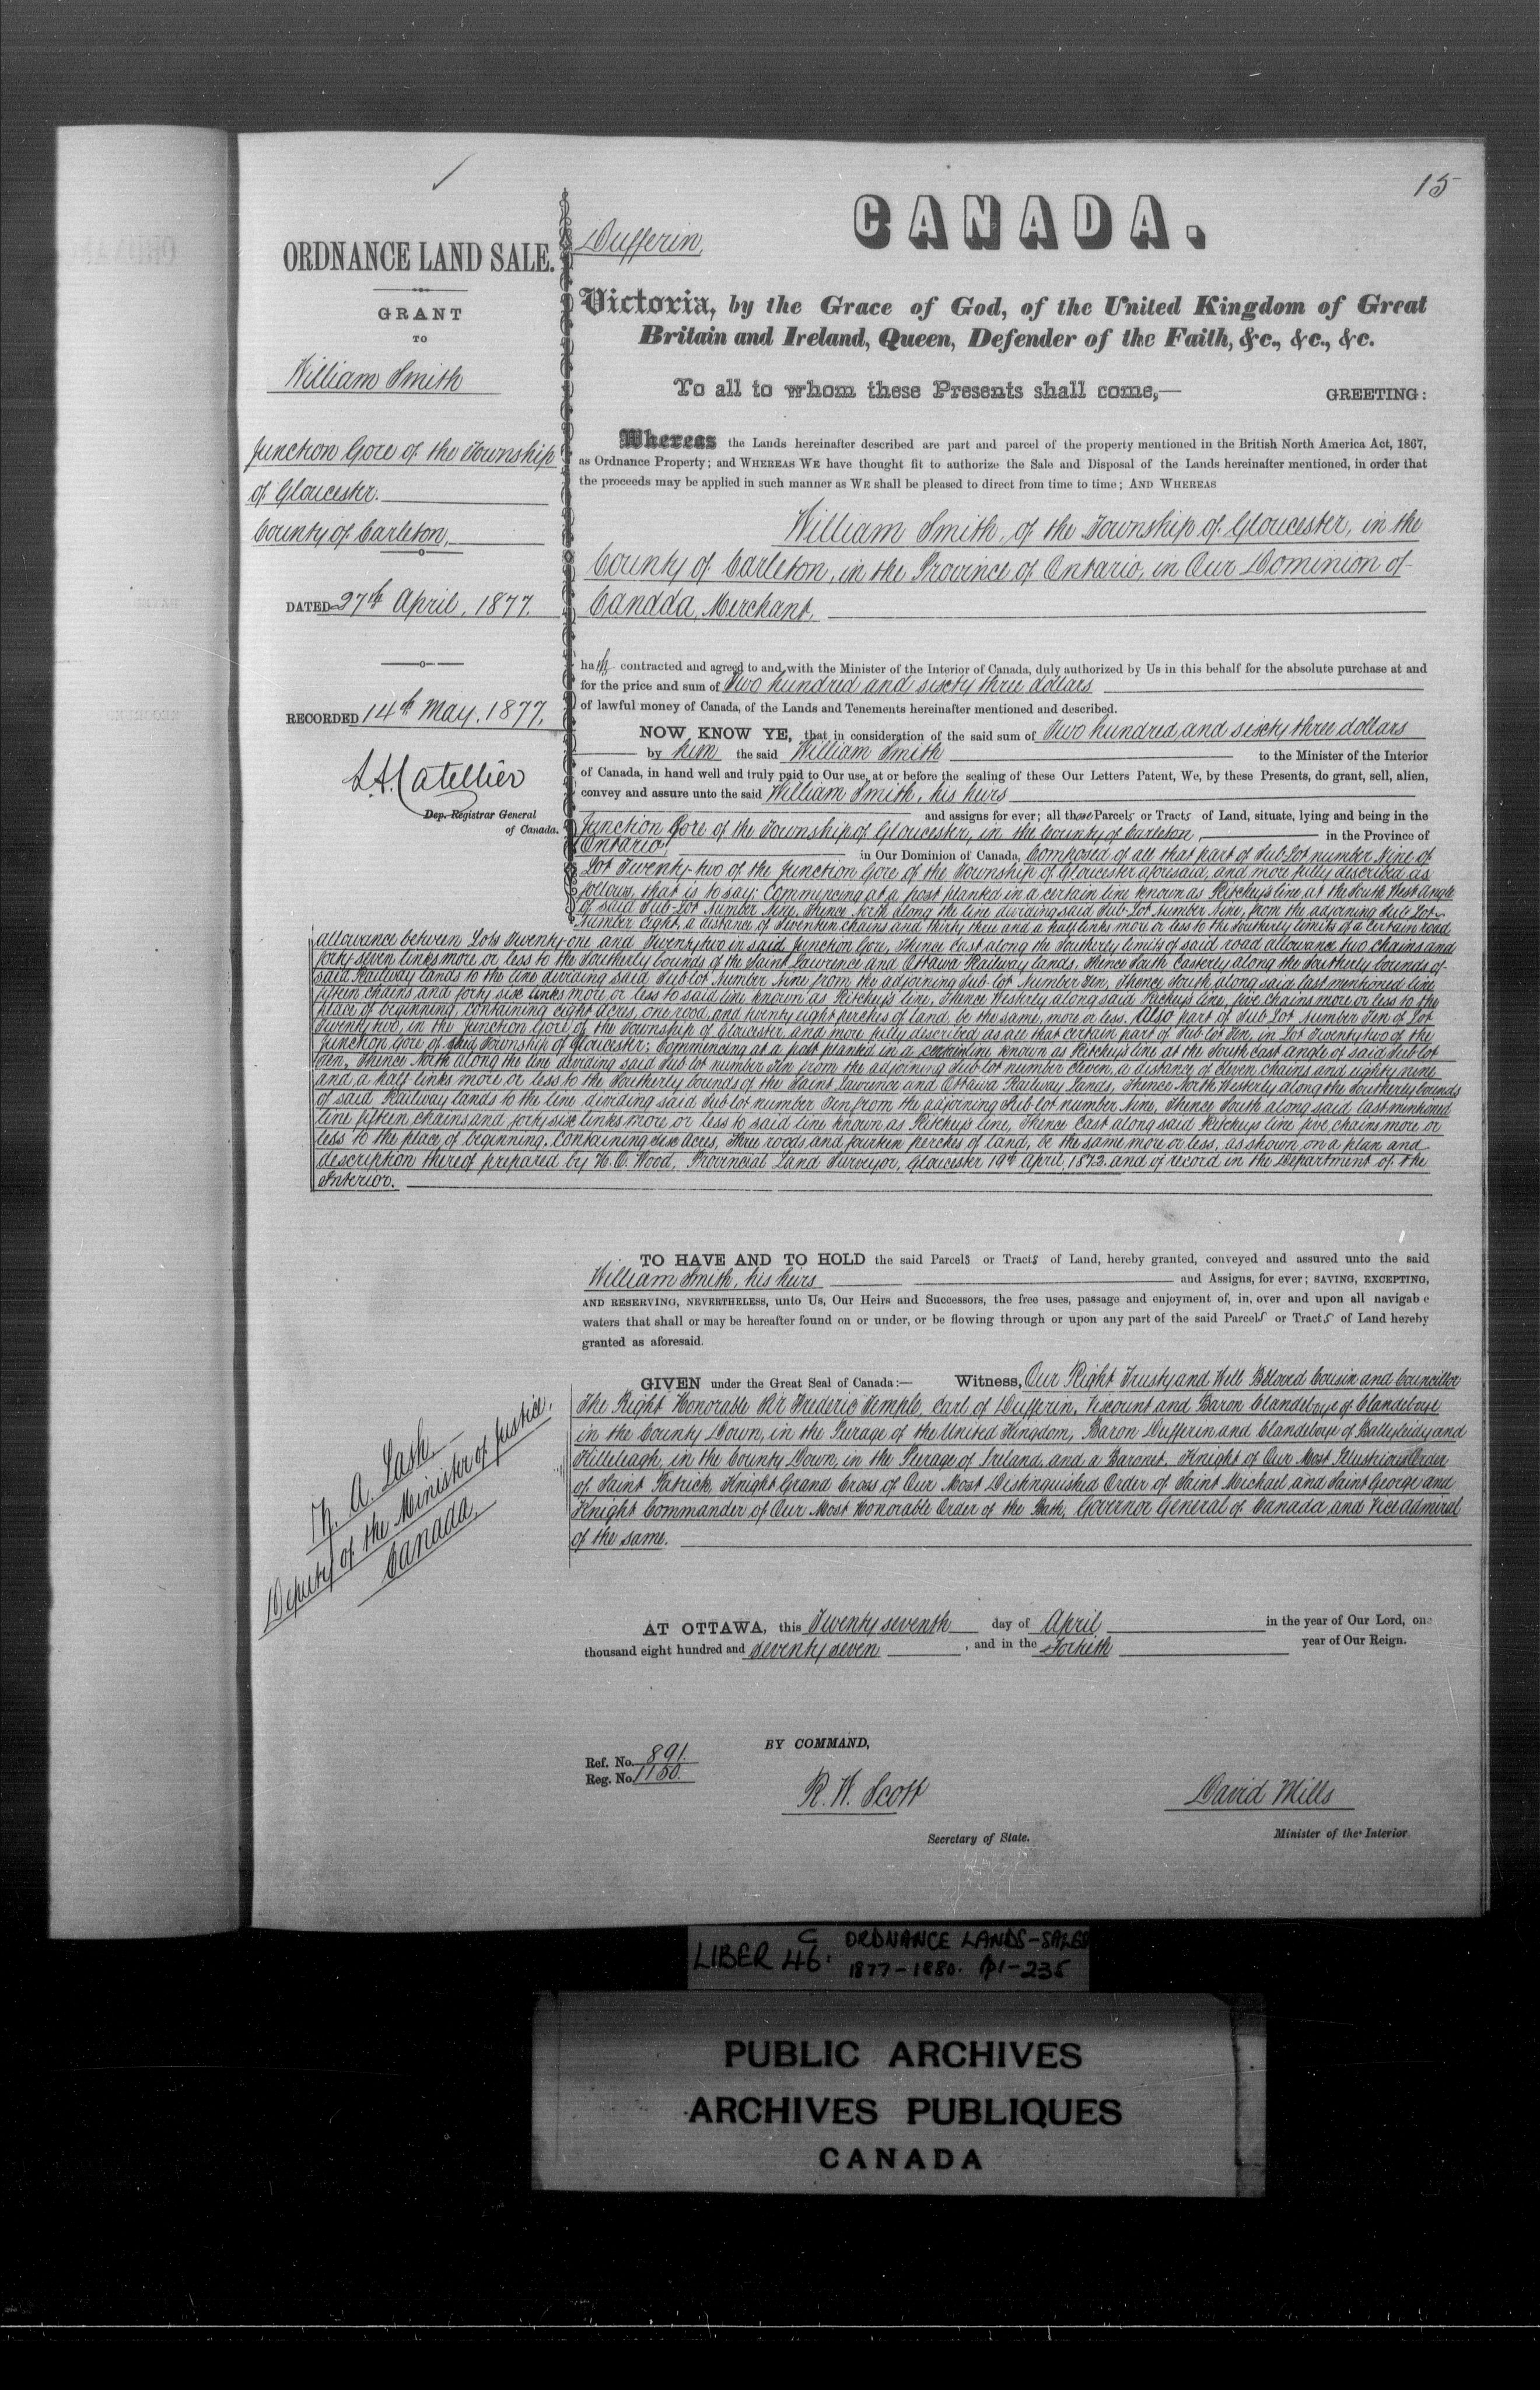 15
CANADA.
ORDNANCE LAND SALE.
GRANT
TO
William Smith
Junction Gore of the Township
of Gloucester.
County of Carleton,
DATED 27th April, 1877.
RECORDED 14th May, 1877.
L.A. Catellier
Dep. Registrar General
of Canada.
Dufferin,
Victoria, by the Grace of God, of the United Kingdom of Great
Britain and Ireland, Queen, Defender of the Faith, &c., &c., &c.
To all to whom these Presents shall come,— GREETING:
Whereas the Lands hereinafter described are part and parcel of the property mentioned in the British North America Act, 1867,
as Ordnance Property; and WHEREAS WE have thought fit to authorize the Sale and Disposal of the Lands hereinafter mentioned, in order that
the proceeds may be applied in such manner as WE shall be pleased to direct from time to time; AND WHEREAS
William Smith, of the Township of Gloucester, in the
County of Carleton, in the Province of Ontario, in Our Dominion of
Canada, Merchant,
hath contracted and agreed to and with the Minister of the Interior of Canada, duly authorized by Us in this behalf for the absolute purchase at and
for the price and sum of Two hundred and sixty three dollars
of lawful money of Canada, of the Lands and Tenements hereinafter mentioned and described.
NOW KNOW YE, that in consideration of the said sum of Two hundred and sixty three dollars
by him the said William Smith to the Minister of the Interior
of Canada, in hand well and truly paid to Our use, at or before the sealing of these Our Letters Patent, We, by these Presents, do grant, sell, alien,
convey and assure unto the said William Smith, his heirs
and assigns for ever; all those Parcels or Tracts of Land, situate, lying and being in the
Junction Gore of the Township of Gloucester, in the County of Carleton, in the Province of
Ontario, in Our Dominion of Canada, Composed of all that part of Sub-Lot number Nine of
Lot Twenty-two of the Junction Gore of the Township of Gloucester aforesaid, and more fully described as
follows, that is to say: Commencing at a post planted in a certain line known as Ritchey's line at the South West angle
of said Sub-Lot Number Nine, Thence North along the line dividing said Sub-Lot Number Nine, from the adjoining Sub-Lot
Number Eight, a distance of Seventeen chains and thirty three and a half links more or less to the Southerly limits of a certain road
allowance between Lots Twenty-one and Twenty two in said Junction Gore, Thence East along the Southerly limits of said road allowance two chains and
forty seven links more or less to the Southerly bounds of the Saint Lawrence and Ottawa Railway lands, Thence South Easterly along the Southerly bounds of
said Railway lands to the line dividing said Sub-lot Number Nine from the adjoining Sub-lot Number Ten, Thence South along said last mentioned line
fifteen chains and forty six links more or less to said line known as Ritchey's line, Thence Westerly along said Richeys line, five chains more or less to the
place of beginning, containing eight Acres, one rood, and twenty eight perches of land, be the same, more or less. Also part of Sub Lot Number Ten of Lot
Twenty two, in the Junction Gore of the Township of Gloucester and more fully described as all that certain part of Sub lot Ten, in Lot Twenty two of the
Junction Gore of said Township of Gloucester; Commencing at a post planted in a certain line known as Ritchey's line at the South East angle of said Sub lot
Ten, Thence North along the line dividing said Sub lot number Ten from the adjoining Sub lot number eleven, a distance of eleven chains and eighty nine
and a half links more or less to the Southerly bounds of the Saint Lawrence and Ottawa Railway Lands, Thence North Westerly along the Southerly bounds
of said Railway lands to the line dividing said Sub lot number Ten from the adjoining Sub lot number Nine, Thence South along said last mentioned
line fifteen chains and forty six links more or less to said line known as Ritchey's line, Thence East along said Ritcheys line five chains more or
less to the place of beginning, Containing six Acres, three roods, and fourteen perches of land, be the same more or less, as shown on a plan and
description thereof prepared by H. O. Wood, Provincial Land Surveyor, Gloucester 19th April, 1873. and of record in the Department of the
Interior.
TO HAVE AND TO HOLD the said Parcels or Tracts of Land, hereby granted, conveyed and assured unto the said
William Smith, his heirs and Assigns, for ever; SAVING, EXCEPTING,
AND RESERVING, NEVERTHELESS, unto Us, Our Heirs and Successors, the free uses, passage and enjoyment of, in, over and upon all navigab e
waters that shall or may be hereafter found on or under, or be flowing through or upon any part of the said Parcels or Tracts of Land hereby
granted as aforesaid.
GIVEN under the Great Seal of Canada:— Witness, Our Right Trusty and Well Beloved Cousin and Councillor
The Right Honorable Sir Frederic Temple, Earl of Dufferin, Viscount and Baron Clandeboye of Clandeboye
in the County Down, in the Peerage of the United Kingdom, Baron Dufferin and Clandeboye of Ballyleidy and
Killeleagh, in the County Down, in the Peerage of Ireland, and a Baronet, Knight of Our Most Illustrious Order
of Saint Patrick, Knight Grand Cross of Our Most Distinguished Order of Saint Michael and Saint George and
Knight Commander of Our Most Honorable Order of the Bath, Governor General of Canada and Vice Admiral
of the same.
Z. A. Lash
Deputy of the Minister of Justice,
Canada.
AT OTTAWA, this Twenty seventh day of April in the year of Our Lord, one
thousand eight hundred and seventy seven, and in the Fortieth year of Our Reign.
BY COMMAND,
Ref. No. 891.
Reg. No. 1150.
R. W. Scott
Secretary of State.
David Mills
Minister of the Interior
LIBER C 46. ORDNANCE LANDS-SALES
1877-1880. p1-235
PUBLIC ARCHIVES
ARCHIVES PUBLIQUES
CANADA